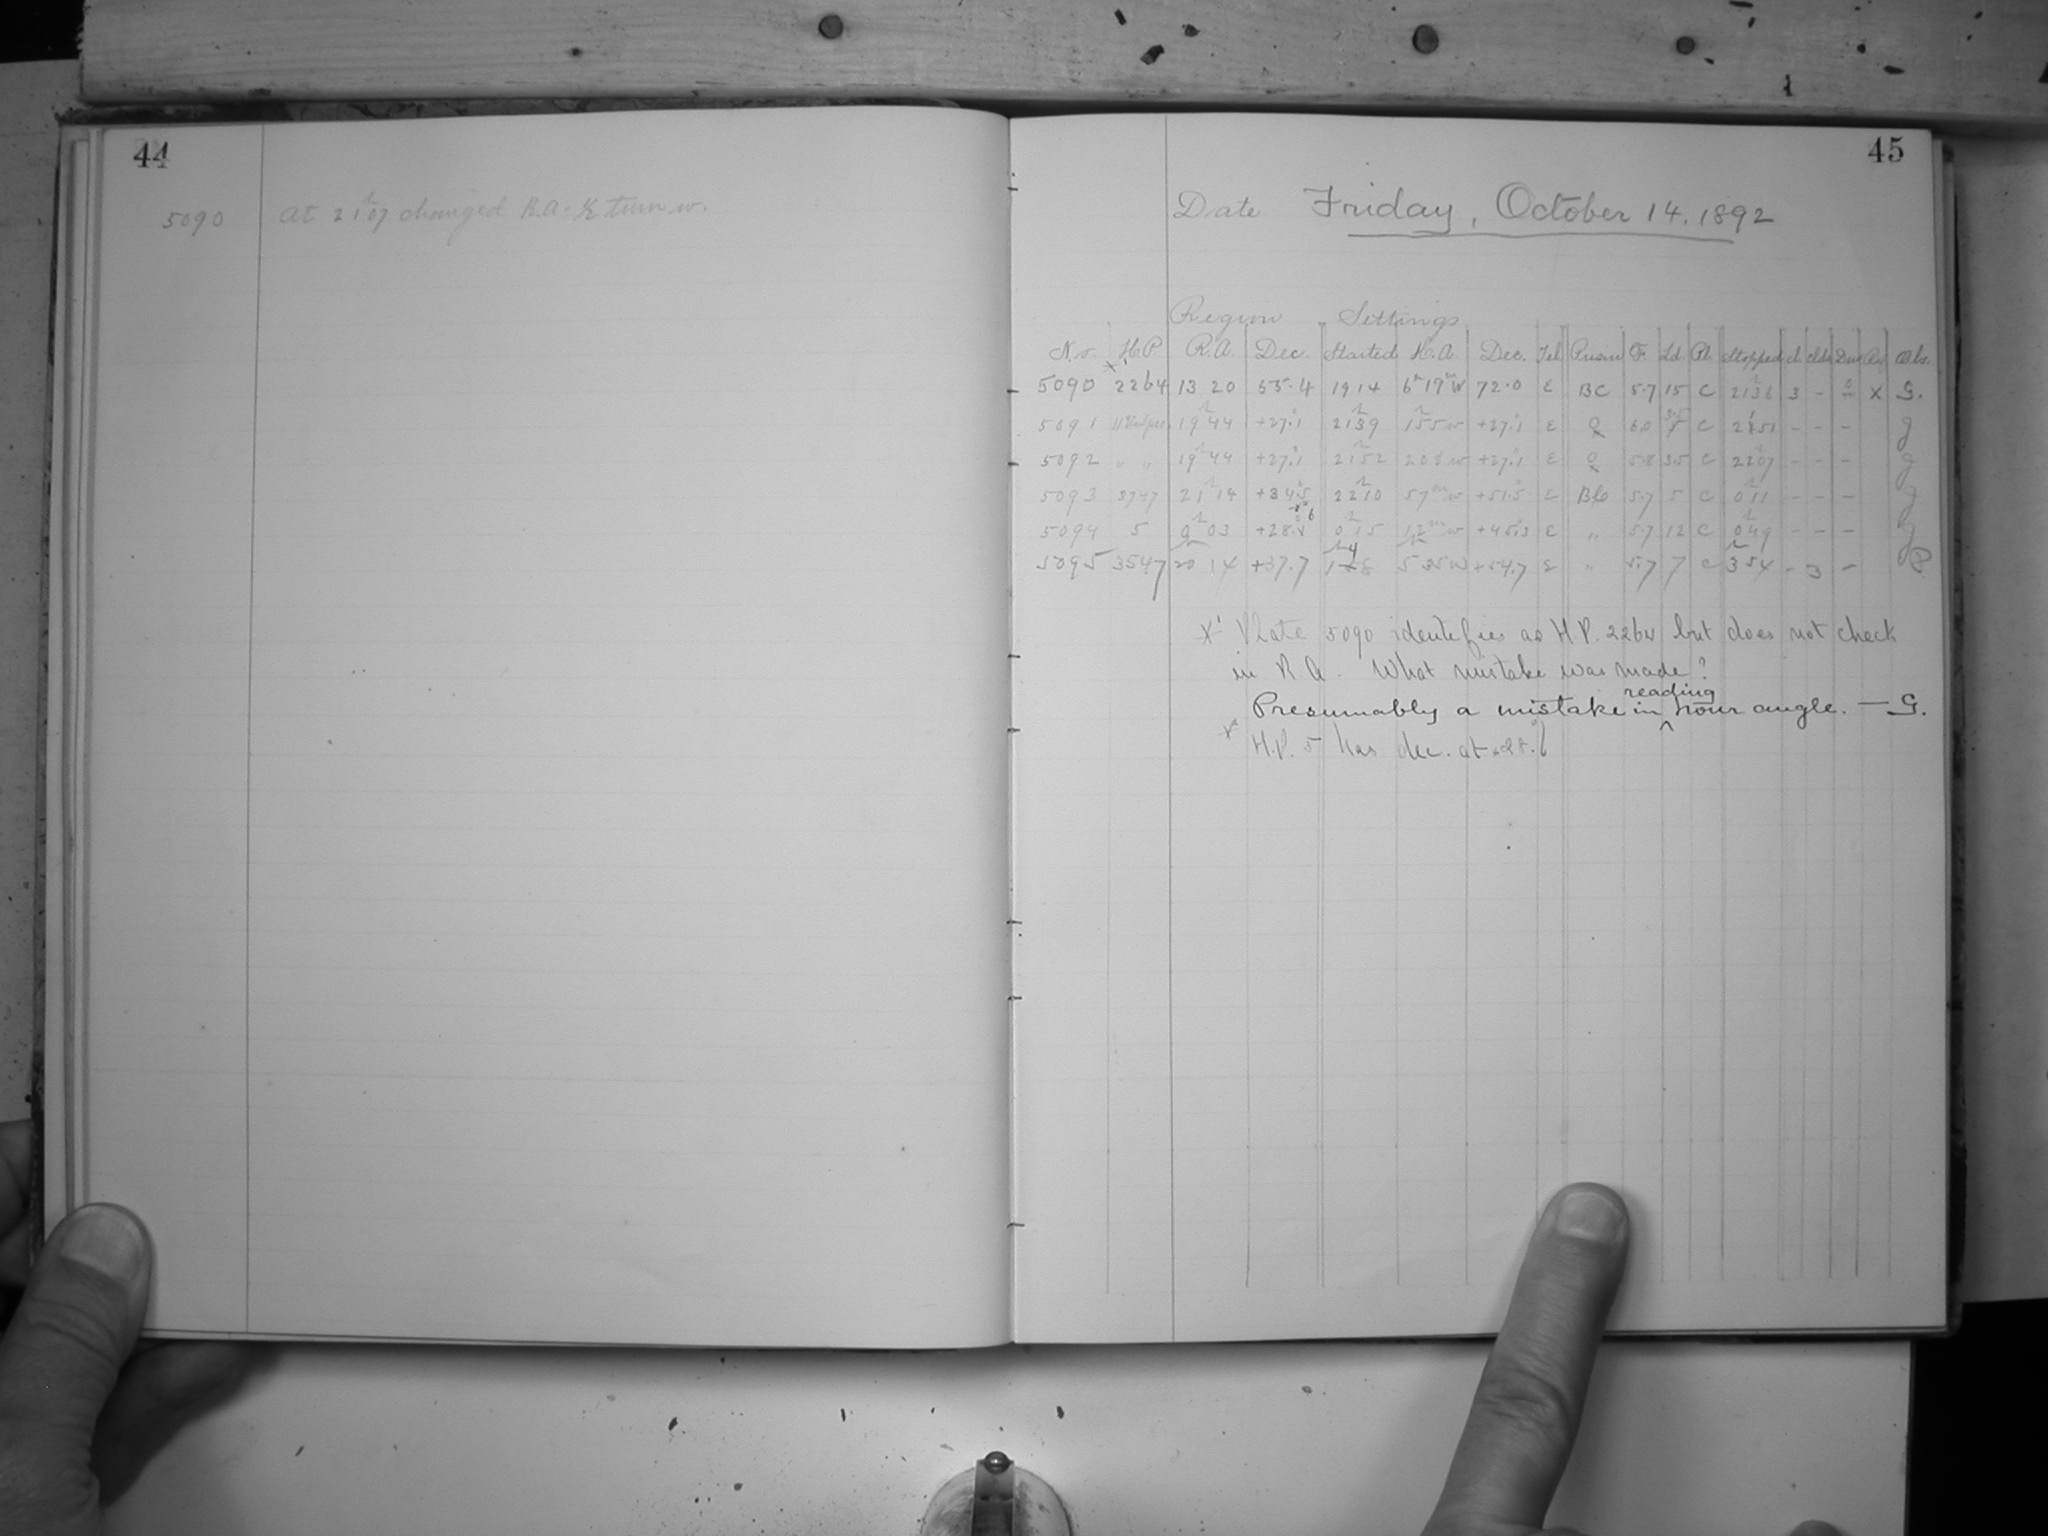 44
5090 At 21h07 changed R.A. turn w.
45
Date Friday, October 14. 1892
Region Settings
No. H.P. R.A. Dec. Started H.A. Dec. Tel Prism F. Ld Pl. Stopped Obs.
5090 x' 2264 13 20 55.4 19 14 6h 19m W 72.0 E BC 5.7 15 C 21 36 3 - - x G.
5091 19h 44 +27.1 21h 39 1h 55 w +27.1 E 0 6.0 C 21 51 - - - g
5092 " " 19h 44 +27.1 21h 52 2 08 w +27.1 E 0 5.8 3.5 C 22 07 - - - g
5093 3747 21h 14 +34.5 22h 10 57m w +51.5 E BC 5.7 5 C 0h 11 - - - g
5094 5 0h 03 +28. 6 0h 15 12m w +45.3 E " 5.7 12 C 0h 49 - - - g
5095 3547 20 14 +37.7 5 35 w +54.7 E " 5.7 7 C 3h 54 - 3 - P
x' Plate 5090 identifies as H.P. 2264 but does not check
in R.A. What mistake was made?
Presumably a mistake in reading hour angle. — G.
x H.P. 5 has dec. at +28.6